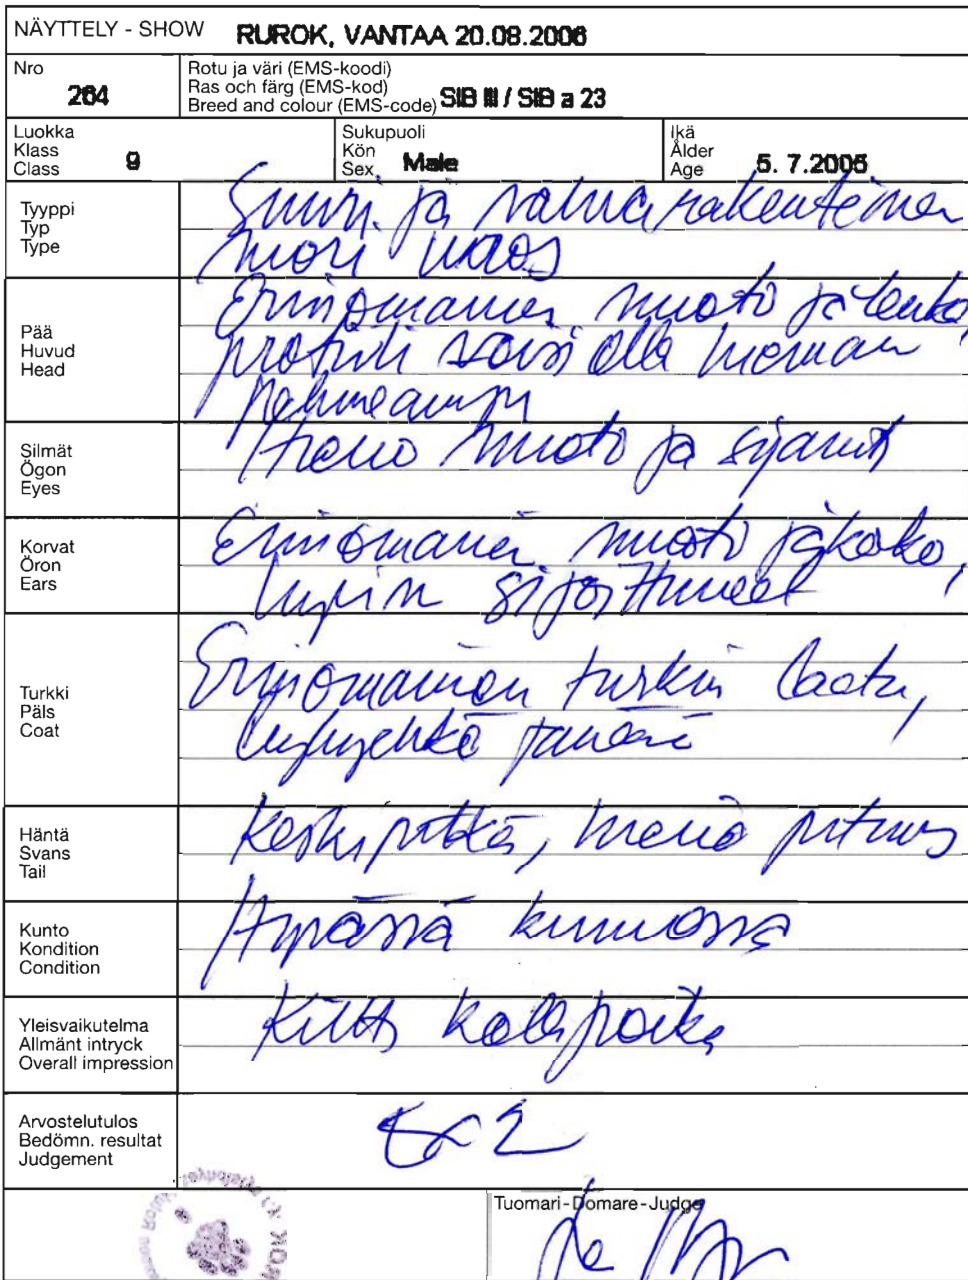 NÄYTTELY - SHOW RUROK, VANTAA 20.08.2006
Nro
264
Rotu ja väri (EMS-koodi)
Ras och färg (EMS-kod)
Breed and colour (EMS-code) SIB III / SIB a 23
Luokka
Klass
Class 9
Sukupuoli
Kön
Sex Male
Ikä
Ålder
Age 5. 7.2005
Tyyppi
Typ
Type
Suuri ja vahvarakenteinen
nuori uros
Pää
Huvud
Head
Erinomainen muoto ja leuka,
profiili saisi olla hieman
pehmeämpi
Silmät
Ögon
Eyes
Hieno muoto ja sijainti
Korvat
Öron
Ears
Erinomainen muoto ja koko,
hyvin sijoittuneet
Turkki
Päls
Coat
Erinomainen turkin laatu,
lyhyehkö tänään
Häntä
Svans
Tail
Keskipitkä, hieno pituus
Kunto
Kondition
Condition
Hyvässä kunnossa
Yleisvaikutelma
Allmänt intryck
Overall impression
Kiltti kollipoika
Arvostelutulos
Bedömn. resultat
Judgement
Ex 2
Tuomari-Domare-Judge